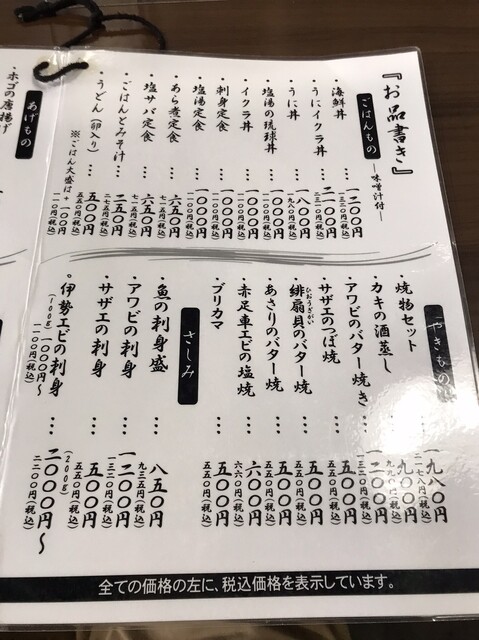 『お品書き』
ごはんもの
―味噌汁付―
・海鮮丼 … 一二〇〇円
一三二〇円(税込)
・うにイクラ丼 … 二一〇〇円
二三一〇円(税込)
・うに丼 … 一八〇〇円
一九八〇円(税込)
・塩湯の琉球丼 … 一〇〇〇円
一一〇〇円(税込)
・イクラ丼 … 一〇〇〇円
一一〇〇円(税込)
・刺身定食 … 一〇〇〇円
一一〇〇円(税込)
・塩湯定食 … 一〇〇〇円
一一〇〇円(税込)
・あら煮定食 … 六五〇円
七一五円(税込)
・塩サバ定食 … 六五〇円
七一五円(税込)
・ごはんとみそ汁 … 二五〇円
二七五円(税込)
・うどん(卵入り) … 五〇〇円
五五〇円(税込)
※ごはん大盛は+一〇〇円
一一〇円(税込)
あげもの
・ホゴの唐揚げ
やきもの
・焼物セット … 一九八〇円
二一七八円(税込)
・カキの酒蒸し … 九〇〇円
九九〇円(税込)
・アワビのバター焼き … 一二〇〇円
一三二〇円(税込)
・サザエのつぼ焼 … 五〇〇円
五五〇円(税込)
・緋扇貝のバター焼 … 五〇〇円
ひおうぎがい
五五〇円(税込)
・あさりのバター焼 … 五〇〇円
五五〇円(税込)
・赤足車エビの塩焼 … 六〇〇円
六六〇円(税込)
・ブリカマ … 五〇〇円
五五〇円(税込)
さしみ
・魚の刺身盛 … 八五〇円
九三五円(税込)
・アワビの刺身 … 一二〇〇円
一三二〇円(税込)
・サザエの刺身 … 五〇〇円
五五〇円(税込)
・伊勢エビの刺身
(100g) 一〇〇〇円〜
一一〇〇円(税込)
… (200g) 二〇〇〇円〜
二二〇〇円(税込)
全ての価格の左に、税込価格を表示しています。